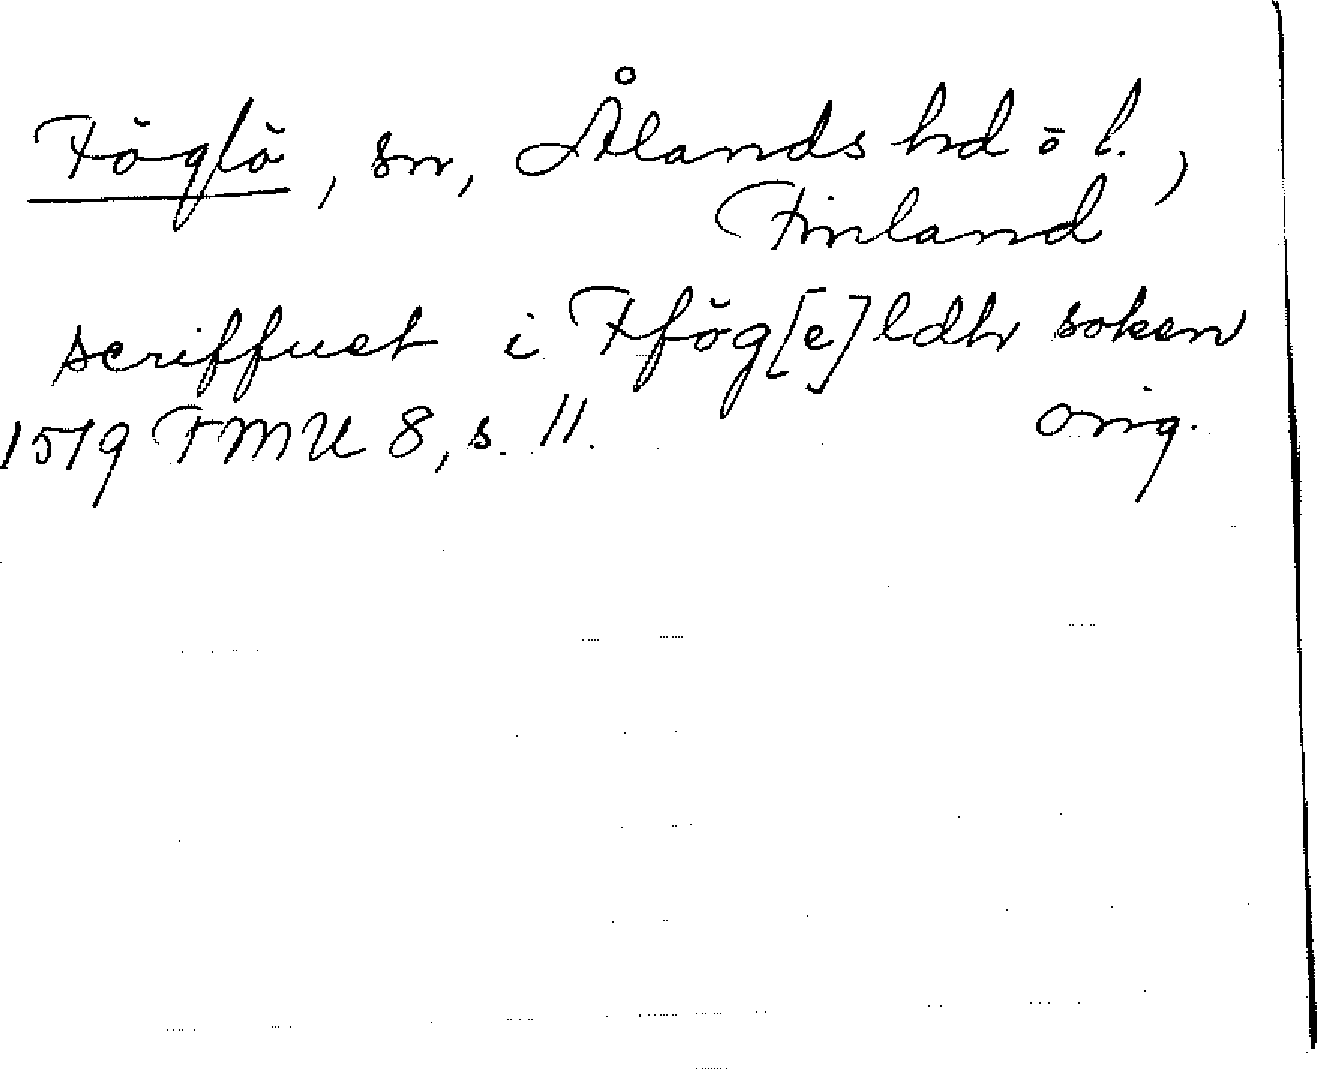 Föglö, sn, Ålands hd o l.,
Finland
scriffuet i Ffög[e]ldhr soken
1519 FMU 8, s. 11. orig.